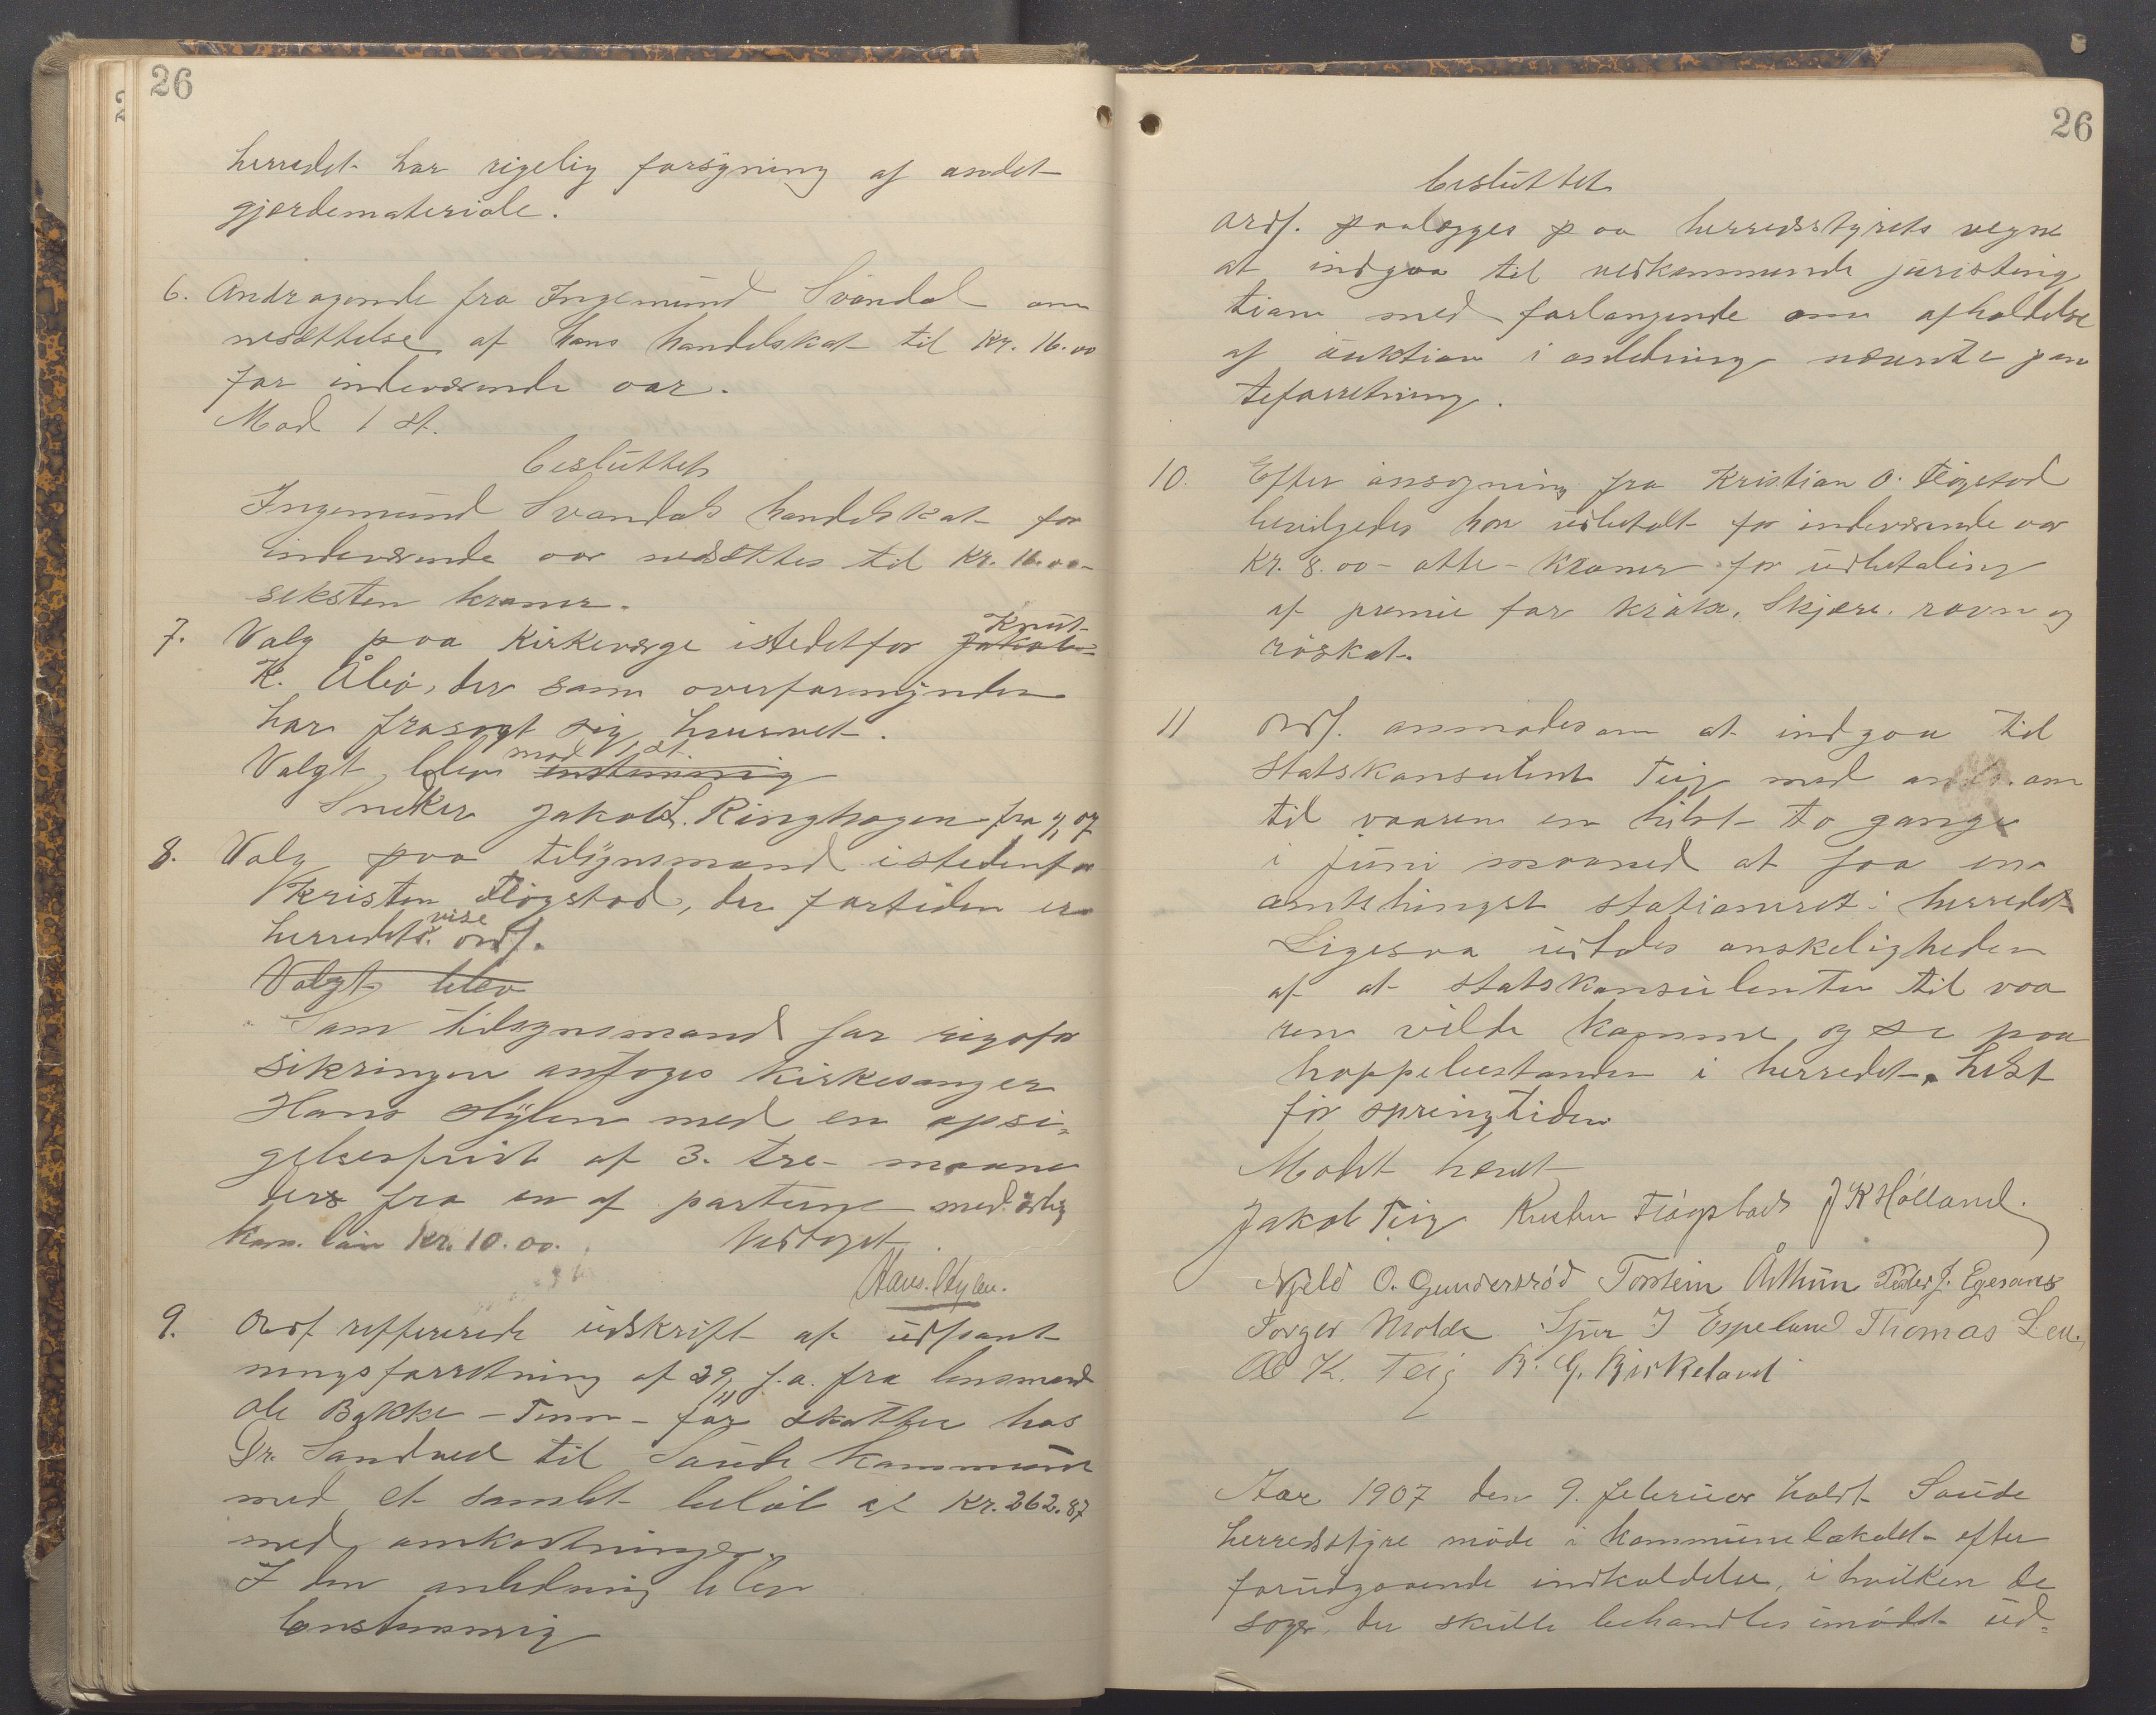 26
herredet har rigelig forsyning af andet
gjærdemateriale.
6. Andragende fra Ingemund Svandal om
nedsættelse af hans handelskat til Kr. 16.00
for indeværende aar.
Mod 1 st.
besluttet
Ingemund Svandals handelskat for
indeværende aar nedsættes til Kr. 16.00-
seksten kroner.
7. Valg paa Kirkeværge istedetfor Jakob Knut
K. Åbø, der som overformynder
har frasagt sig hvervet.
Valgt blev enstemmig mod 1 st.
Snedker Jakob L. Ringhagen fra 1/1 07
8. Valg paa tilsynsmand istedenfor
Kristen Fløgstad, der fortiden er
herredets vise ordf.
Valgt blev
Som tilsynsmand for
sikringen antoges kirkesanger
Hans Hylen med en opsi-
gelsesfrist af 3. tre- maane
ders fra en af parterne med årlig
kom. løn Kr. 10.00. Vedtaget
Hans. Hylen.
9. Ordf reffererede udskrift af udpant
ningsforretning af 29/11 f.a. fra lensmand
Ole Bakke - - for skatter hos
Dr. Sandved til Saude kommune
med et samlet beløb af Kr. 262.87
med omkostninger.
I den anledning blev
Enstemmig
26
besluttet
Ordf. paalægges paa herredsstyrets vegne
at indgaa til vedkommende jurisding
tion med forlangende om afholdelse
af auktion i anledning nævnte pan
teforretning.
10. Efter ansøgning fra Kristian O. Fløgstad
bevilgedes ham udbetalt for indeværende aar
Kr. 8.00 - otte - Kroner for udbetaling
af premie for kråke, Skjære, ravn og
røskat.
11 Ordf. anmodes om at indgaa til
Statskonsulent Teig med andr. om
til vaaren en helst to gange
i juni maaned at faa en
amtshingst stationeret i herredet
Ligesaa udtales ønskeligheden
af at Statskonsulenten til vaa
ren vilde komme og se paa
hoppebestanden i herredet, helst
før springtiden
Mødet hævet
Jakob Teig Kristen Fløgstad J K Hølland.
Njeld O. Gundersrød Torstein Årthun Peder J. Egesaas
Torger Molde Sjur J Espeland Thomas L
Ole K. Teig B. G. Birkeland
Aar 1907 den 9. februar holdt Saude
herredsstyre møde i kommunelokalet efter
forudgaaende indkaldelse, i hvilken de
sager, der skulle behandles imødet ud-